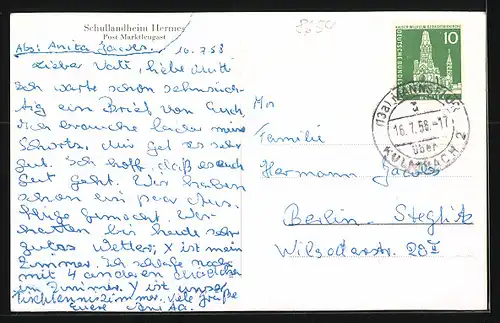 Schullandheim Hermes
Post Marktleugast
8694
Abs: Anita Jacobs. 16.7.58
Lieber Vati, liebe Mutti
Ich warte schon sehnsüch-
tig ein Brief von Euch,
Ich brauche leider mine
Shorts. Mir get es sehr
gut. Ich hoff, daß es auch
gut geht. Wir haben
schon ein paar Aus-
flüge gemacht. Wir
hatten bis heute sehr
gutes Wetter, X ist mein
Zimmer. Ich schlafe noch
mit 4 anderen Mädchen
im Zimmer. Y ist unser
Tischtenniszimmer. Viele Grüße
eure Anita.
An
Familie
Hermann Jacobs
Berlin-Steglitz
Wilsederstr.
KAISER-WILHELM-GEDÄCHTNISKIRCHE
10
DEUTSCHE BUNDESPOST
BERLIN
(13a) MANNSFLUR
16.7.58.-17
über
KULMBACH 2